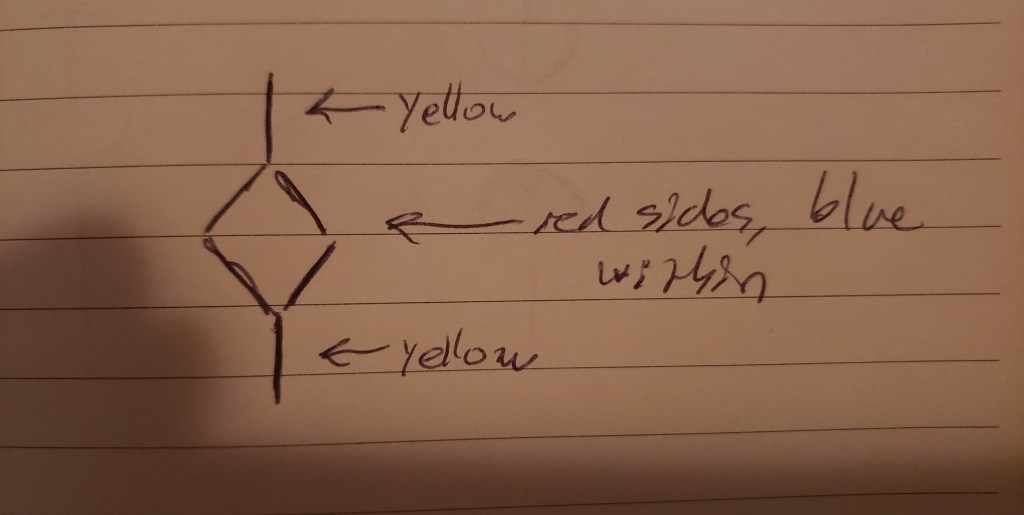 yellow
red sides, blue
within
yellow